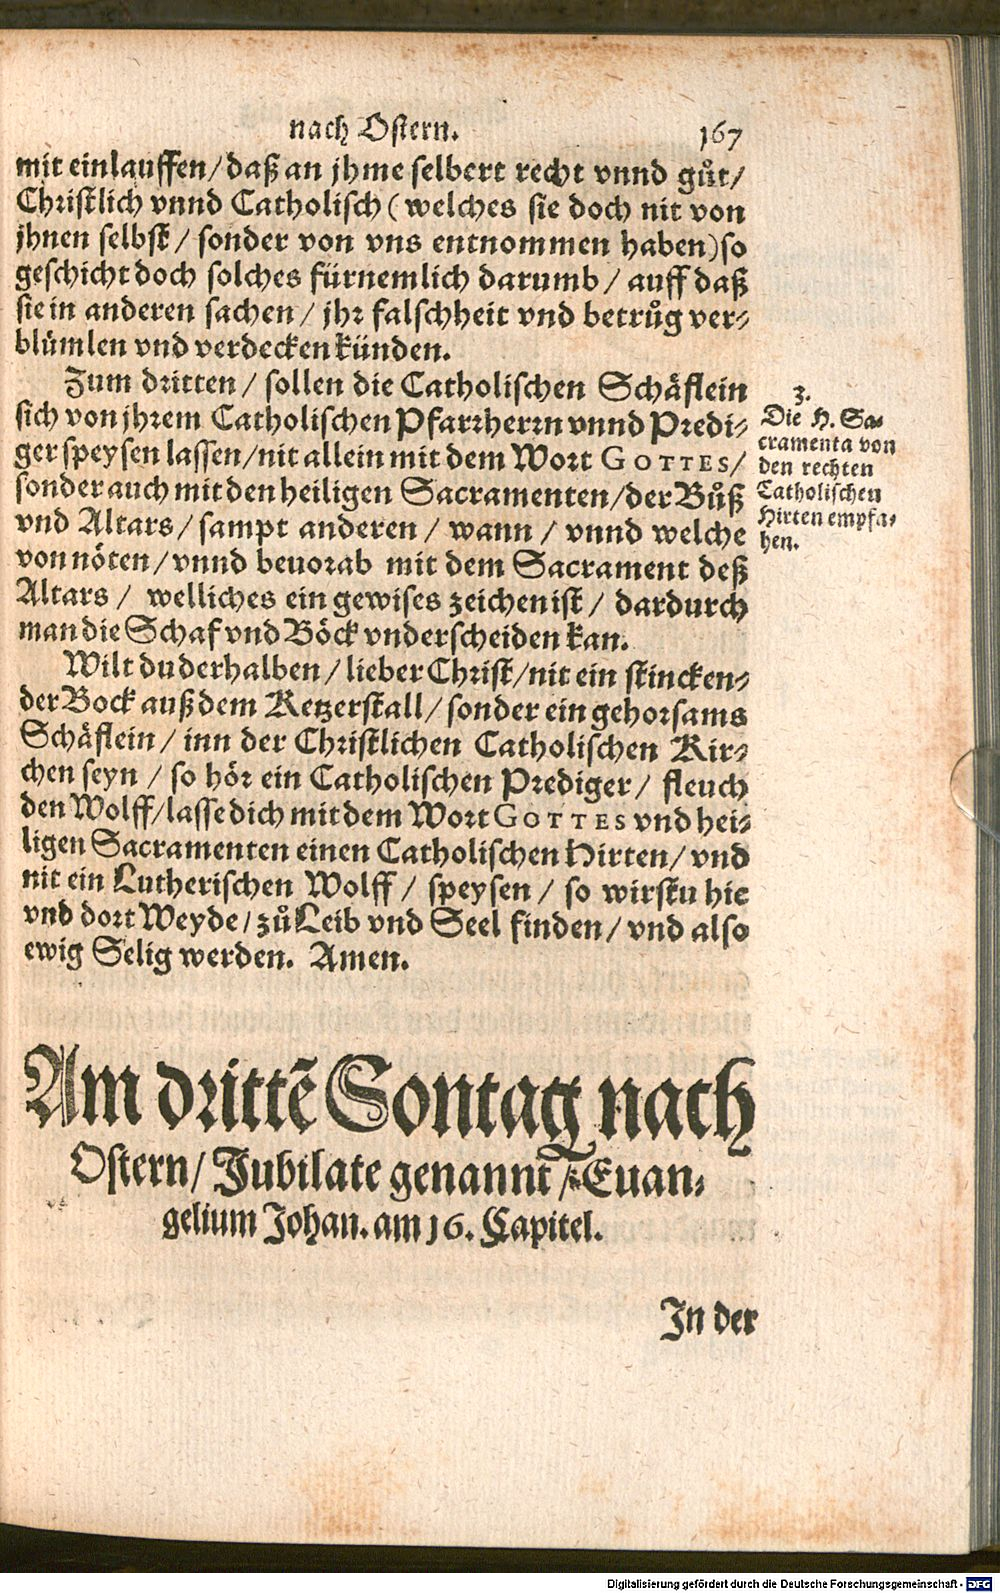 nach Ostern. 167
mit einlauffen/ daß an jhme selbert recht vnnd gůt/
Christlich vnnd Catholisch (welches sie doch nit von
jhnen selbst/ sonder von vns entnommen haben) so
geschicht doch solches fürnemlich darumb/ auff daß
sie in anderen sachen/ jhr falschheit vnd betrůg ver-
blümlen vnd verdecken künden.
Zum dritten/ sollen die Catholischen Schäflein
sich von jhrem Catholischen Pfarrherrn vnnd Predi-
ger speysen lassen/ nit allein mit dem Wort GOTTES/
sonder auch mit den heiligen Sacramenten/ der Bůß
vnd Altars/ sampt anderen/ wann/ vnnd welche
von nöten/ vnnd beuorab mit dem Sacrament deß
Altars/ welliches ein gewises zeichen ist/ dardurch
man die Schaf vnd Böck vnderscheiden kan.
3.
Die H. Sa-
cramenta von
den rechten
Catholischen
Hirten empfa-
hen.
Wilt du derhalben/ lieber Christ/ nit ein stincken-
der Bock auß dem Ketzerstall/ sonder ein gehorsams
Schäflein/ inn der Christlichen Catholischen Kir-
chen seyn/ so hör ein Catholischen Prediger/ fleuch
den Wolff/ lasse dich mit dem Wort GOTTES vnd hei-
ligen Sacramenten einen Catholischen Hirten/ vnd
nit ein Lutherischen Wolff/ speysen/ so wirstu hie
vnd dort Weyde/ zů Leib vnd Seel finden/ vnd also
ewig Selig werden. Amen.
Am drittē Sontag nach
Ostern/ Jubilate genannt/ Euan-
gelium Johan. am 16. Capitel.
In der
Digitalisierung gefördert durch die Deutsche Forschungsgemeinschaft - DFG